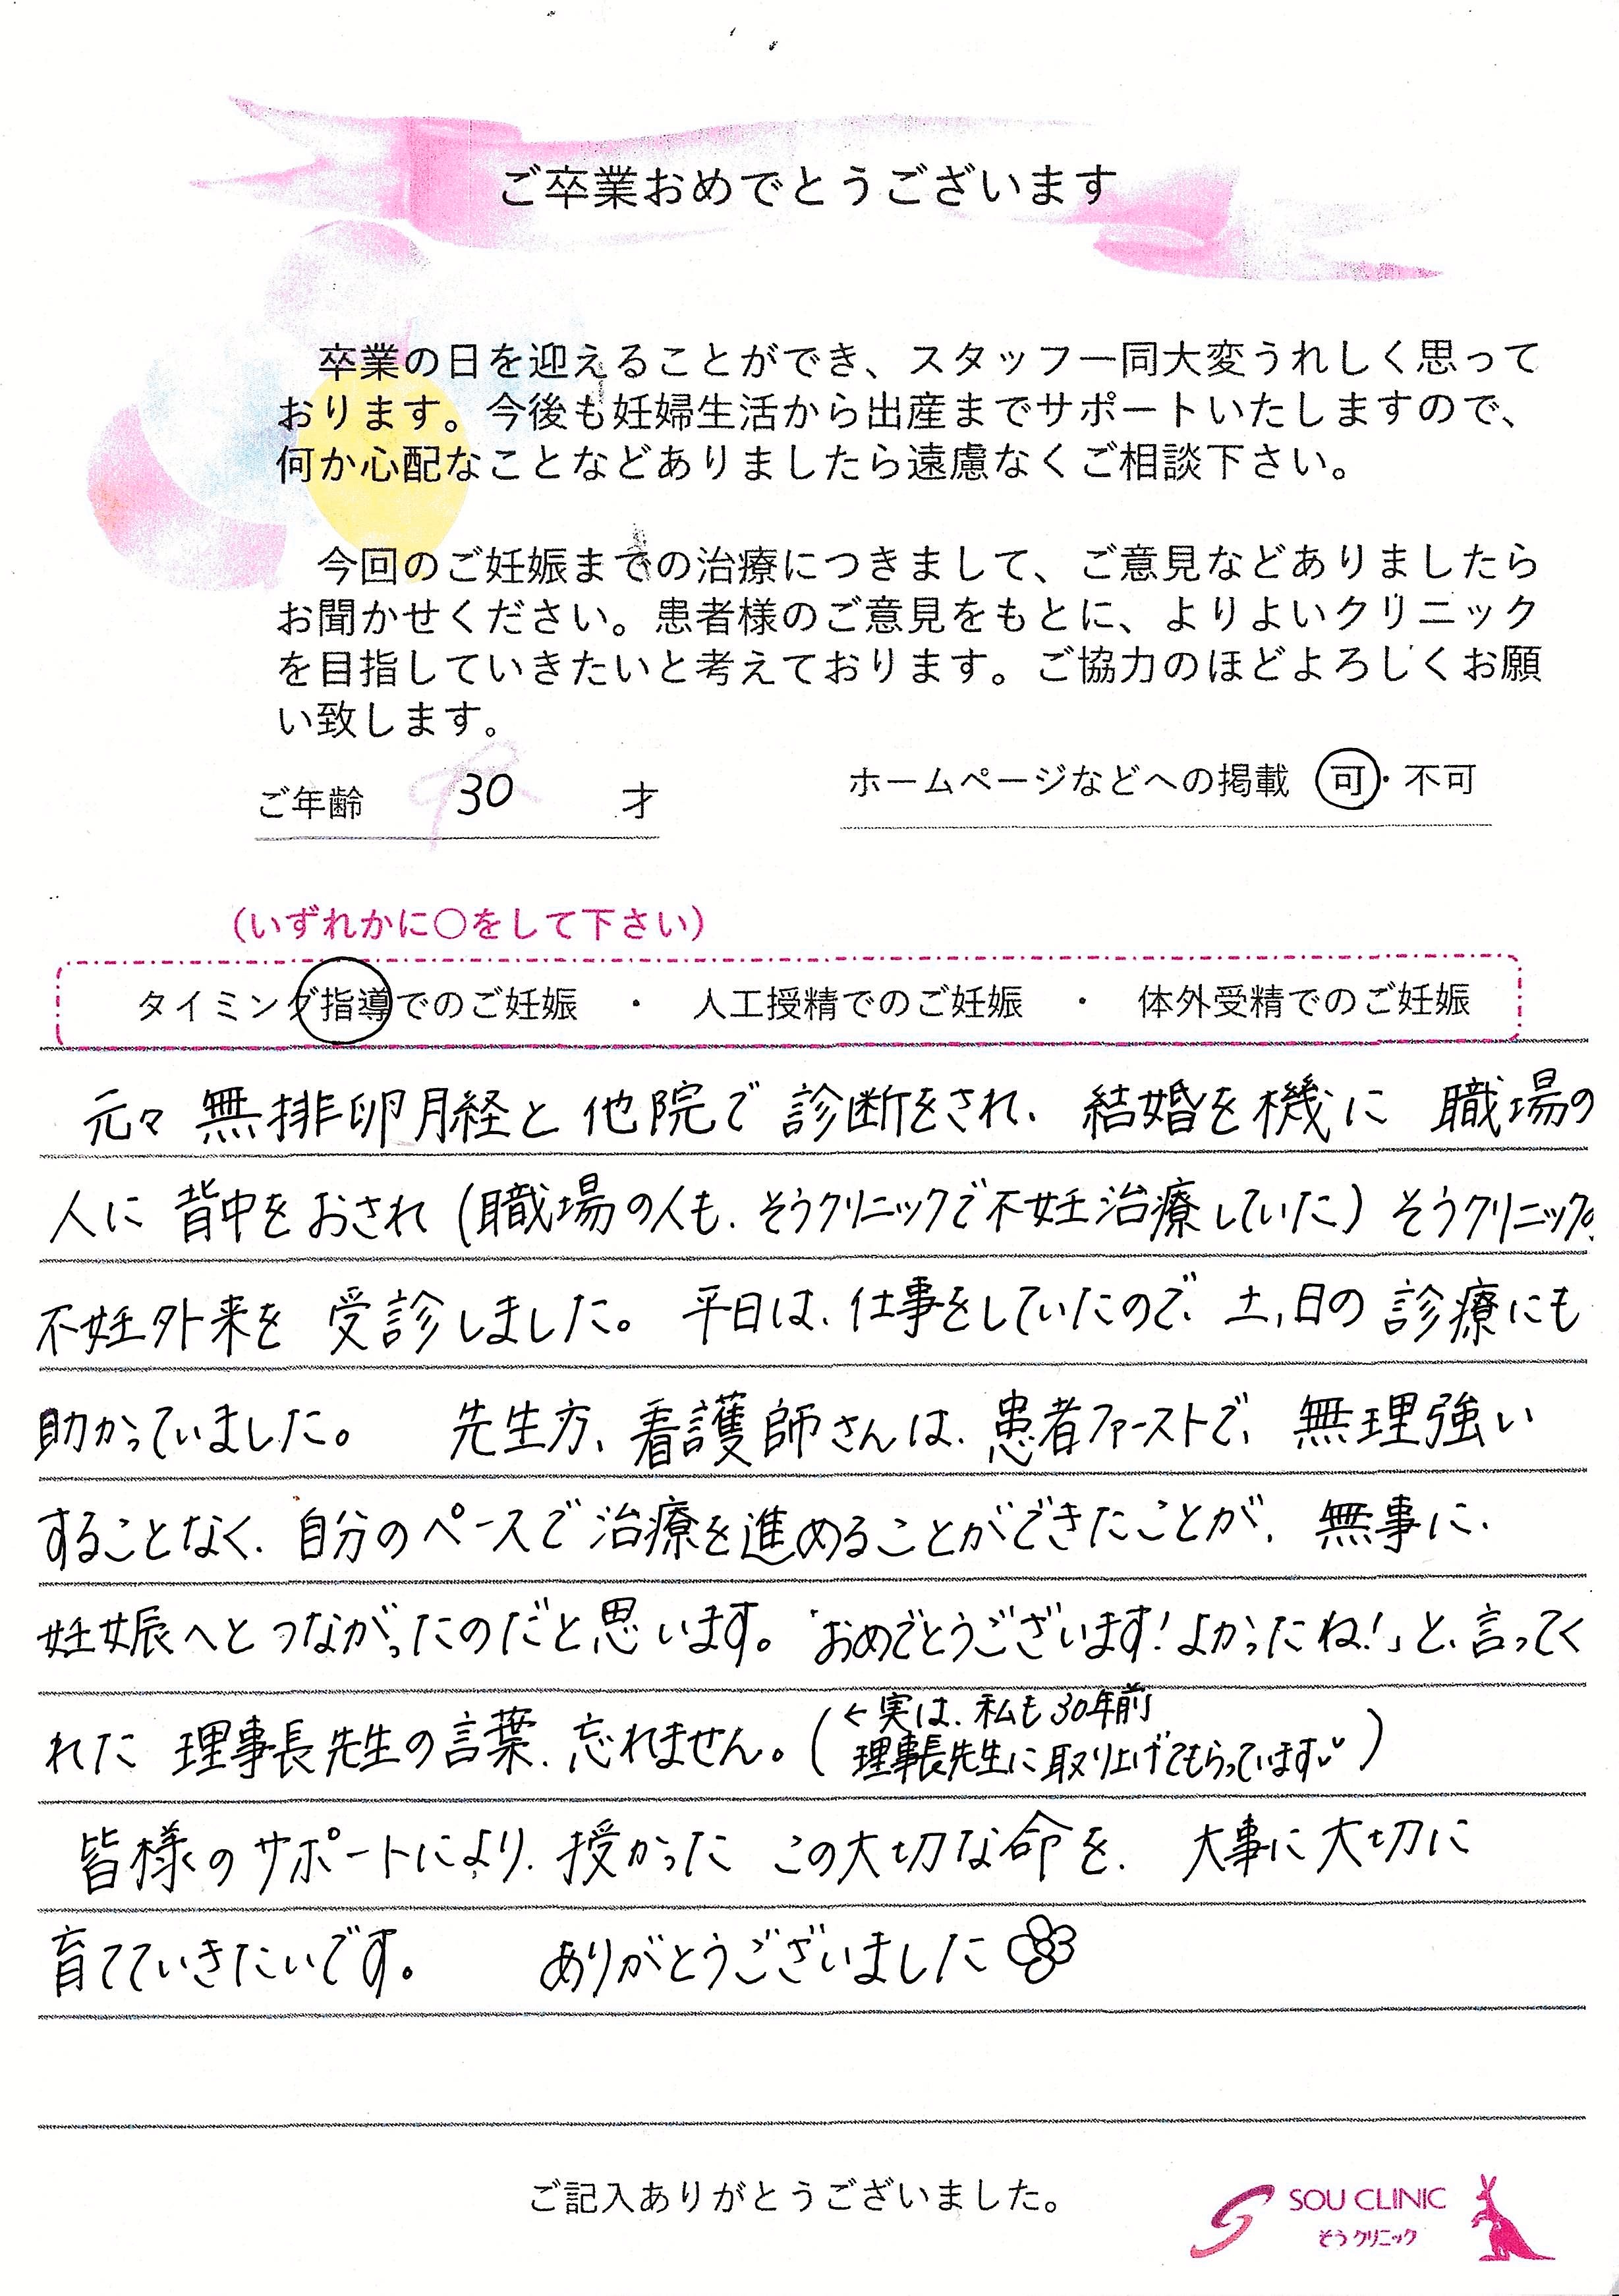 ご卒業おめでとうございます
卒業の日を迎えることができ、スタッフ一同大変うれしく思って
おります。今後も妊婦生活から出産までサポートいたしますので、
何か心配なことなどありましたら遠慮なくご相談下さい。
今回のご妊娠までの治療につきまして、ご意見などありましたら
お聞かせください。患者様のご意見をもとに、よりよいクリニック
を目指していきたいと考えております。ご協力のほどよろしくお願
い致します。
ご年齢 30 才 ホームページなどへの掲載 可・不可
(いずれかに○をして下さい)
タイミング指導でのご妊娠 ・ 人工授精でのご妊娠 ・ 体外受精でのご妊娠
元々 無排卵月経と 他院で 診断をされ、結婚を機に 職場の
人に 背中をおされ (職場の人も、そうクリニックで不妊治療していた) そうクリニックの
不妊外来を 受診しました。平日は、仕事をしていたので、土,日の 診療にも
助かっていました。 先生方、看護師さんは、患者ファーストで、無理強い
することなく、自分のペースで治療を進めることができたことが、無事に、
妊娠へとつながったのだと思います。「おめでとうございます!よかったね!」と、言ってく
れた 理事長先生の言葉、忘れません。(←実は、私も30年前
理事長先生に取り上げてもらっています♡)
皆様のサポートにより、授かった この大切な命を、大事に大切に
育てていきたいです。 ありがとうございました
ご記入ありがとうございました。
SOU CLINIC
そうクリニック